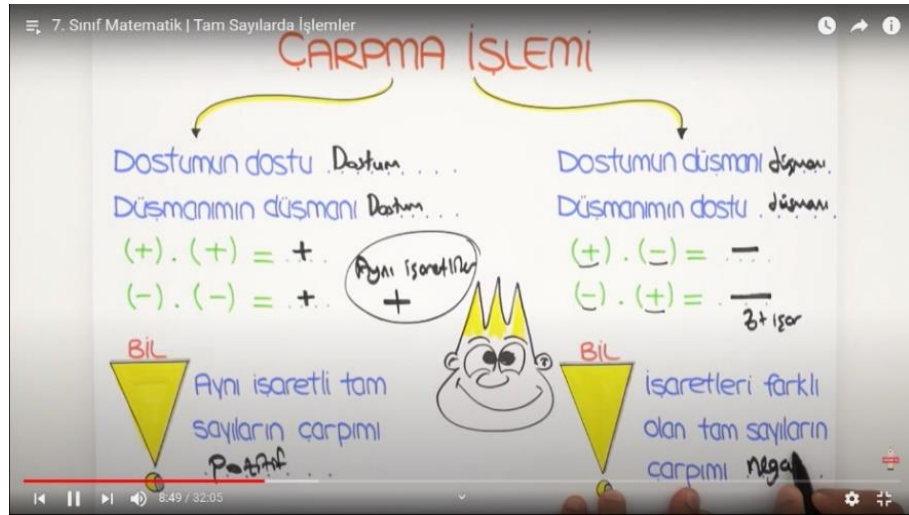 7. Sınıf Matematik | Tam Sayılarda İşlemler
ÇARPMA İŞLEMİ
Dostumun dostu Dostum....
Düşmanımın düşmanı Dostum...
(+) . (+) = +
(-) . (-) = +
Aynı işaretliler
+
BİL
Aynı işaretli tam
sayıların çarpımı
Pozitif....
Dostumun düşmanı düşmanı.
Düşmanımın dostu . düşmanı.
(+) . (-) = −
(-) . (+) = −
Zıt işar
BİL
İşaretleri farklı
olan tam sayıların
çarpımı nega
8:49 / 32:05